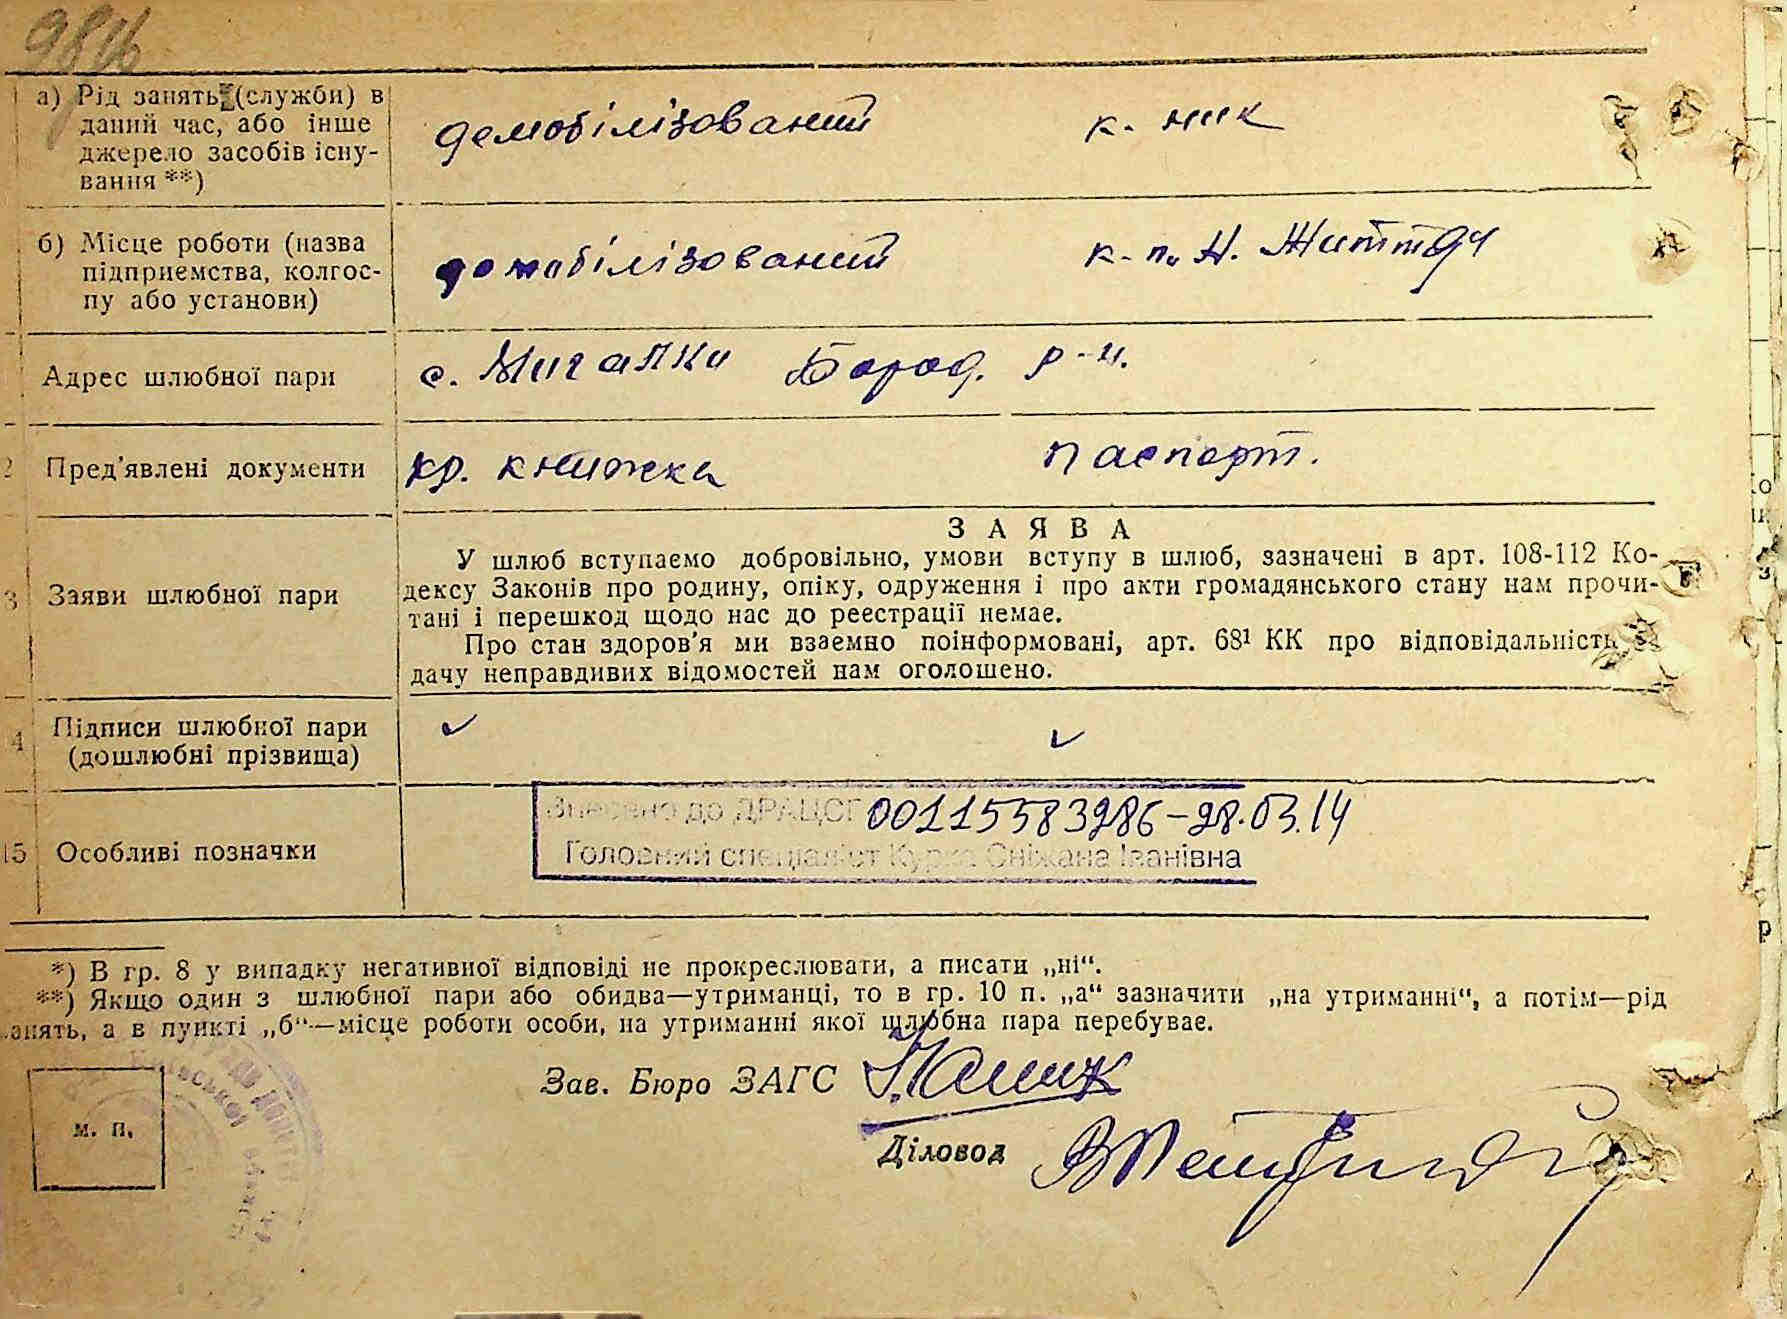 а) Рід занять (служби) в
даний час, або інше
джерело засобів існу-
вання **)
демобілізований к. ник
б) Місце роботи (назва
підприемства, колгос-
пу або установи)
демобілізований к-п. Н. Життя
Адрес шлюбної пари
с. Мигалки Бород. р-н.
Пред'явлені документи
кр. книжка паспорт.
З А Я В А
У шлюб вступаемо добровільно, умови вступу в шлюб, зазначені в арт. 108-112 Ко-
дексу Законів про родину, опіку, одруження і про акти громадянського стану нам прочи-
тані і перешкод щодо нас до реестрації немае.
Про стан здоров'я ми взаемно поінформовані, арт. 68¹ КК про відповідальність
дачу неправдивих відомостей нам оголошено.
3 Заяви шлюбної пари
4 Підписи шлюбної пари
(дошлюбні прізвища)
Внесено до ДРАЦСГ 00115583286-28.03.14
Головний спеціаліст Курка Сніжана Іванівна
15 Особливі позначки
*) В гр. 8 у випадку негативної відповіді не прокреслювати, а писати „ні“.
**) Якщо один з шлюбної пари або обидва—утриманці, то в гр. 10 п. „а“ зазначити „на утриманні“, а потім—рід
занять, а в пункті „б“—місце роботи особи, на утриманні якої шлюбна пара перебувае.
Зав. Бюро ЗАГС
м. п.
Діловод